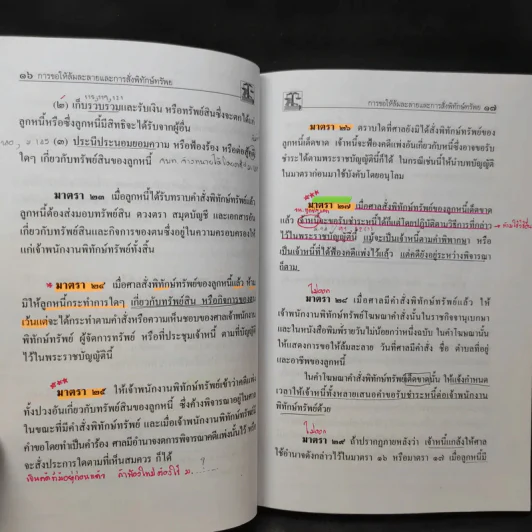 ๑๖ การขอให้ล้มละลายและการสั่งพิทักษ์ทรัพย์
(๒) เก็บรวบรวมและรับเงิน หรือทรัพย์สินซึ่งจะตกได้แก่
ลูกหนี้หรือซึ่งลูกหนี้มีสิทธิจะได้รับจากผู้อื่น
(๓) ประนีประนอมยอมความ หรือฟ้องร้อง หรือต่อสู้คดี
ใดๆ เกี่ยวกับทรัพย์สินของลูกหนี้
มาตรา ๒๓ เมื่อลูกหนี้ได้รับทราบคำสั่งพิทักษ์ทรัพย์แล้ว
ลูกหนี้ต้องส่งมอบทรัพย์สิน ดวงตรา สมุดบัญชี และเอกสารอัน
เกี่ยวกับทรัพย์สินและกิจการของตนซึ่งอยู่ในความครอบครองให้
แก่เจ้าพนักงานพิทักษ์ทรัพย์ทั้งสิ้น
* มาตรา ๒๔ เมื่อศาลสั่งพิทักษ์ทรัพย์ของลูกหนี้แล้ว ห้าม
มิให้ลูกหนี้กระทำการใดๆ เกี่ยวกับทรัพย์สิน หรือกิจการของตน
เว้นแต่จะได้กระทำตามคำสั่งหรือความเห็นชอบของศาลเจ้าพนักงาน
พิทักษ์ทรัพย์ ผู้จัดการทรัพย์ หรือที่ประชุมเจ้าหนี้ ตามที่บัญญัติ
ไว้ในพระราชบัญญัตินี้
***
มาตรา ๒๕ ให้เจ้าพนักงานพิทักษ์ทรัพย์เข้าว่าคดีแพ่ง
ทั้งปวงอันเกี่ยวกับทรัพย์สินของลูกหนี้ ซึ่งค้างพิจารณาอยู่ในศาล
ในขณะที่มีคำสั่งพิทักษ์ทรัพย์ และเมื่อเจ้าพนักงานพิทักษ์ทรัพย์มี
คำขอโดยทำเป็นคำร้อง ศาลมีอำนาจงดการพิจารณาคดีแพ่งนั้นไว้ หรือ
จะสั่งประการใดตามที่เห็นสมควร ก็ได้
การขอให้ล้มละลายและการสั่งพิทักษ์ทรัพย์ ๑๗
มาตรา ๒๖ ตราบใดที่ศาลยังมิได้สั่งพิทักษ์ทรัพย์ของ
ลูกหนี้เด็ดขาด เจ้าหนี้จะฟ้องคดีแพ่งอันเกี่ยวกับหนี้ซึ่งอาจขอรับ
ชำระได้ตามพระราชบัญญัตินี้ก็ได้ ในกรณีเช่นนี้ให้นำบทบัญญัติ
ในมาตราก่อนมาใช้บังคับโดยอนุโลม
***
มาตรา ๒๗ เมื่อศาลสั่งพิทักษ์ทรัพย์ของลูกหนี้เด็ดขาด
แล้ว เจ้าหนี้จะขอรับชำระหนี้ได้ก็แต่โดยปฏิบัติตามวิธีการที่กล่าว
ไว้ในพระราชบัญญัตินี้ แม้จะเป็นเจ้าหนี้ตามคำพิพากษา หรือ
เป็นเจ้าหนี้ที่ได้ฟ้องคดีแพ่งไว้แล้ว แต่คดียังอยู่ระหว่างพิจารณา
ก็ตาม
ไม่ออก
มาตรา ๒๘ เมื่อศาลมีคำสั่งพิทักษ์ทรัพย์แล้ว ให้
เจ้าพนักงานพิทักษ์ทรัพย์โฆษณาคำสั่งนั้นในราชกิจจานุเบกษา
และในหนังสือพิมพ์รายวันไม่น้อยกว่าหนึ่งฉบับ ในคำโฆษณานั้น
ให้แสดงการขอให้ล้มละลาย วันที่ศาลมีคำสั่ง ชื่อ ตำบลที่อยู่
และอาชีพของลูกหนี้
ในคำโฆษณาคำสั่งพิทักษ์ทรัพย์เด็ดขาดนั้น ให้แจ้งกำหนด
เวลาให้เจ้าหนี้ทั้งหลายเสนอคำขอรับชำระหนี้ต่อเจ้าพนักงาน
พิทักษ์ทรัพย์ด้วย
ไม่ออก
มาตรา ๒๙ ถ้าปรากฏภายหลังว่า เจ้าหนี้แกล้งให้ศาล
ใช้อำนาจดังกล่าวไว้ในมาตรา ๑๖ หรือมาตรา ๑๗ เมื่อลูกหนี้มี